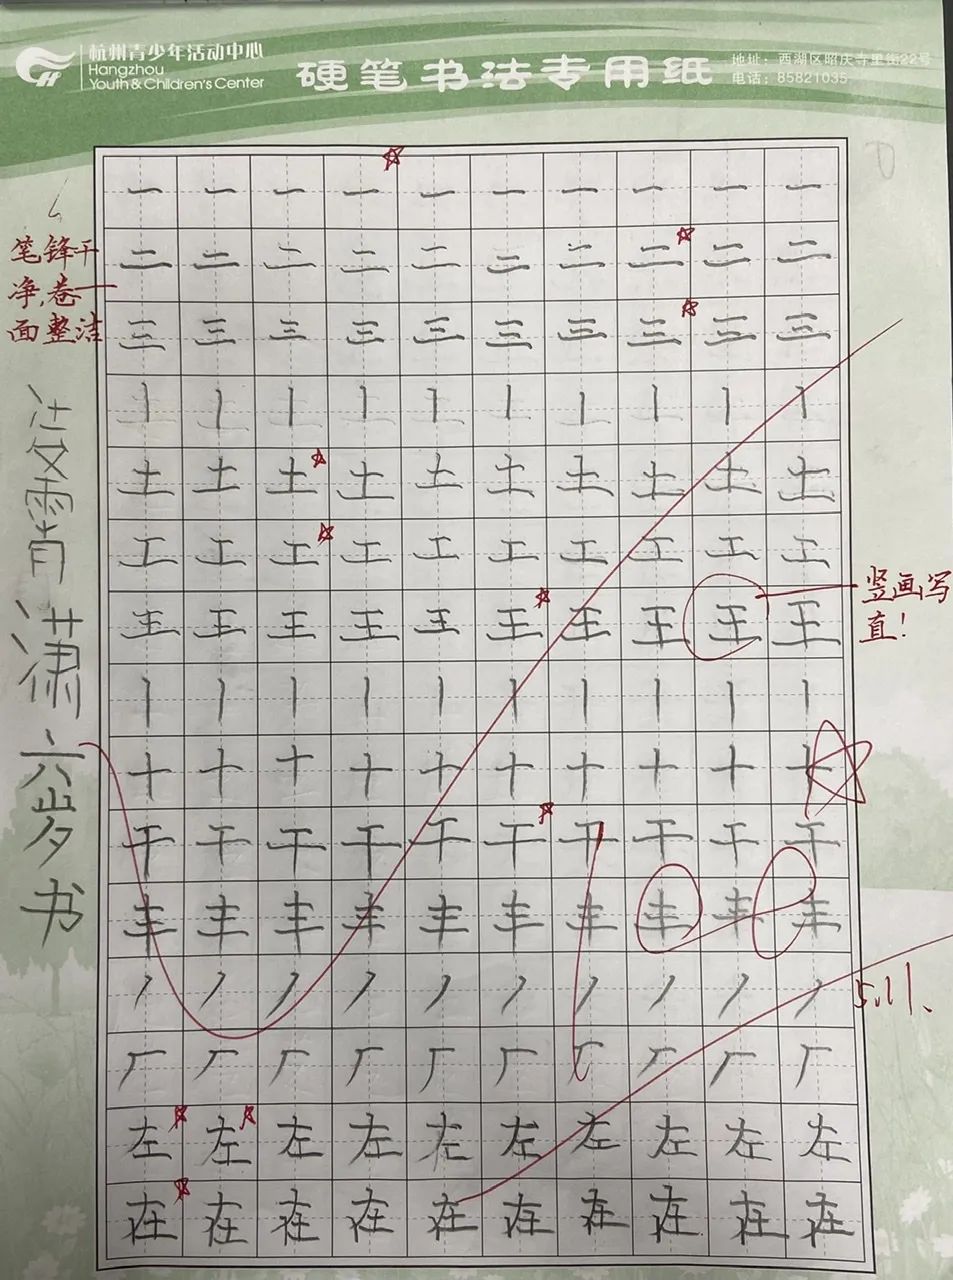 杭州青少年活动中心
Hangzhou
Youth & Children's Center
硬笔书法专用纸
地址：西湖区昭庆寺里街22号
电话：85821035
一一一一一一一一一一
二二二二二二二二二二
三三三三三三三三三三
丨丨丨丨丨丨丨丨丨丨
土土土土土土土土土土
工工工工工工工工工工
王王王王王王王王王王
丨丨丨丨丨丨丨丨丨丨
十十十十十十十十十十
干干干干干干干干干干
丰丰丰丰丰丰丰丰丰丰
丿丿丿丿丿丿丿丿丿丿
厂厂厂厂厂厂厂厂厂厂
左左左左左左左左左左
在在在在在在在在在在
笔锋干
净,卷
面整洁
霄潇六岁书
竖画写
直!
5.11、